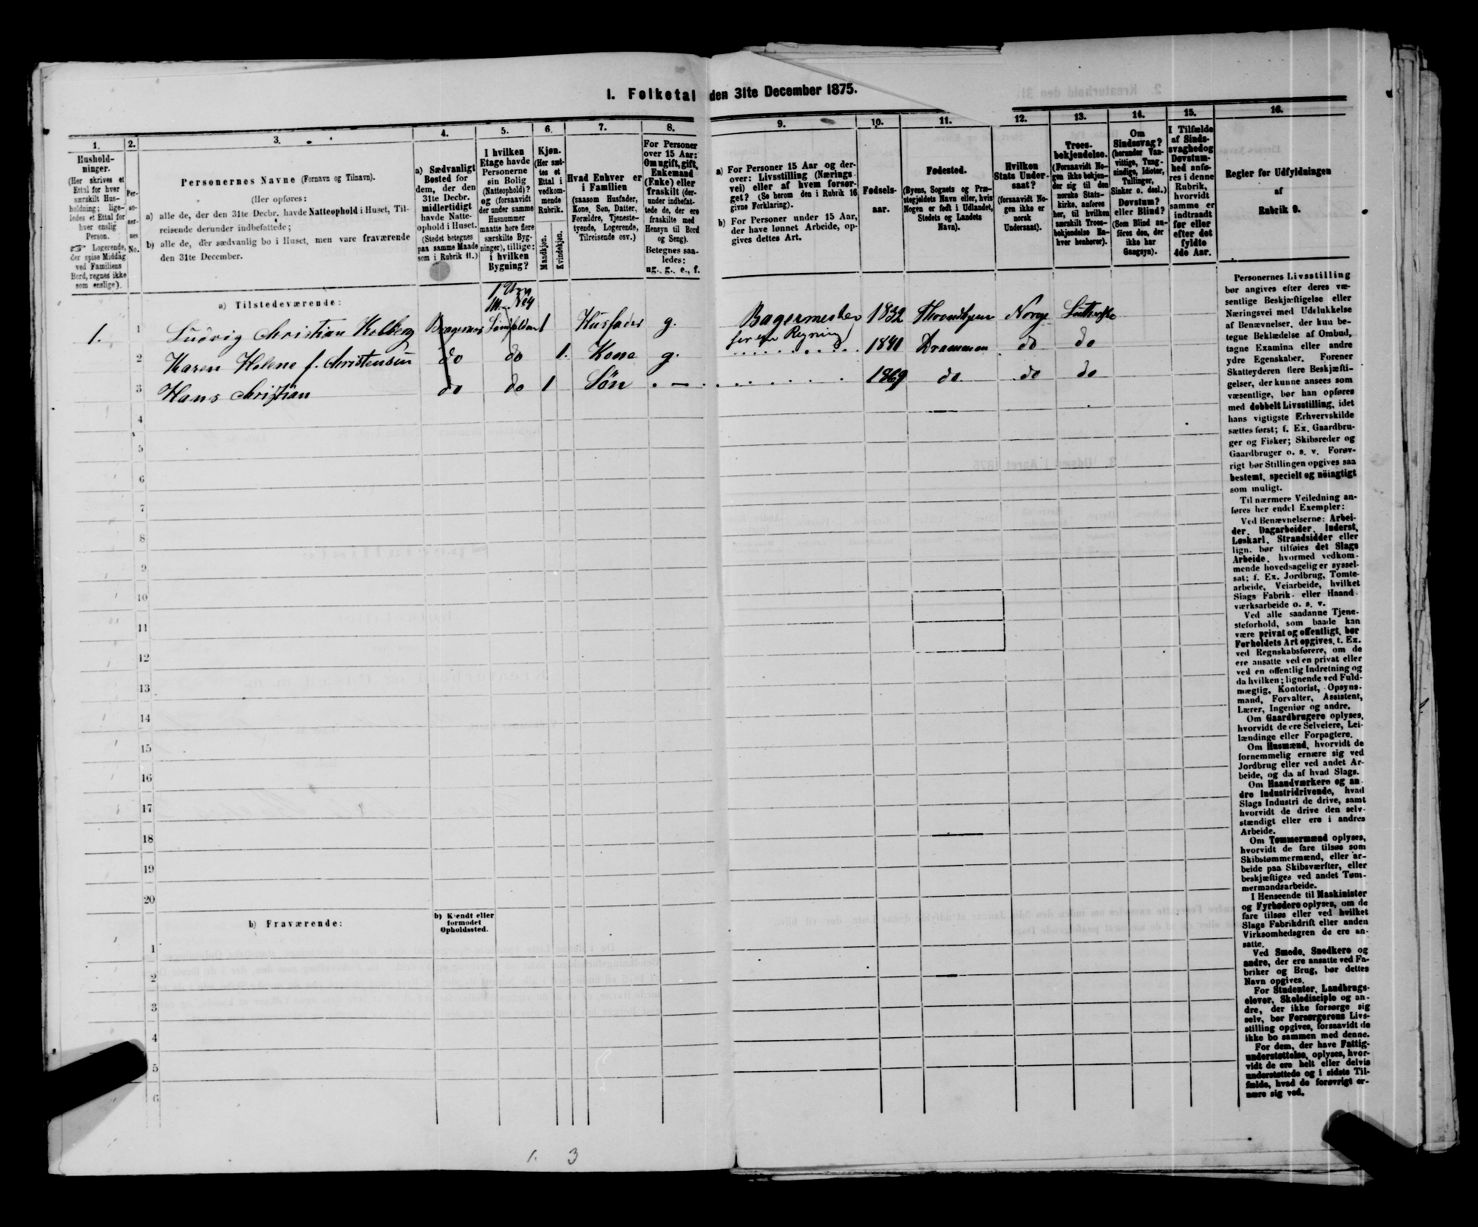 1. Folketal den 31te December 1875.
1.
Husholdninger.
(Her skrives et
Ettal for hver
særskilt Husholdning;
ligeledes et Ettal for
hver enslig
Person.
Logerende,
der spise Middag
ved Familiens
Bord, regnes ikke
som enslige).
2.
Personernes
No.
3.
Personernes Navne (Fornavn og Tilnavn).
(Her opføres:
a) alle de, der den 31te Decbr. havde Natteophold i Huset, Tilreisende
derunder indbefattede;
b) alle de, der sædvanlig bo i Huset, men vare fraværende
den 31te December.
4.
a) Sædvanligt
Bosted for
dem, der den
31te Decbr.
midlertidigt
havde Natteophold
i Huset.
(Stedet betegnes
paa samme Maade
som i Rubrik 11.)
5.
I hvilken
Etage havde
Personerne
sin Bolig
(Natteophold)?
og (forsaavidt
der under samme
Husnummer
maatte høre flere
særskilte Bygninger),
tillige:
i hvilken
Bygning?
6.
Kjøn.
(Her sættes
et
Ettal i
vedkommende
Rubrik.
Mandkjøn.
Kvindekjøn.
7.
Hvad Enhver er
i Familien
(saasom Husfader,
Kone, Søn, Datter,
Forældre, Tjenestetyende,
Logerende,
Tilreisende osv.)
8.
For Personer
over 15 Aar:
Om ugift, gift,
Enkemand
(Enke) eller
fraskilt (derunder
indbefattede
de, der ere
fraskilte med
Hensyn til Bord
og Seng).
Betegnes saaledes:
ug., g., e., f.
9.
a) For Personer 15 Aar og derover:
Livsstilling (Næringsvei)
eller af hvem forsørget?
(Se herom den i Rubrik 16
givne Forklaring).
b) For Personer under 15 Aar,
der have lønnet Arbeide, opgives
dettes Art.
10.
Fødselsaar.
11.
Fødested.
(Byens, Sognets og Præstegjeldets
Navn eller, hvis
Nogen er født i Udlandet,
Stedets og Landets
Navn).
12.
Hvilken
Stats Undersaat?
(forsaavidt Nogen
ikke er
norsk
Undersaat).
13.
Troesbekjendelse.
(Forsaavidt Nogen
ikke bekjender
sig til den
norske Statskirke,
anføres
her, til hvilken
særskilt Troesbekjendelse
Enhver
henhører).
14.
Om
Sindssvag?
(herunder Vanvittige,
Tungsindige,
Idioter,
Tullinger,
Sinker o. desl.)
Døvstum?
eller Blind?
(Som Blind anføres
den, der
ikke har
Gangsyn).
15.
I Tilfælde
af Sindssvaghed
og
Døvstumhed
anføres
i denne
Rubrik,
hvorvidt
samme er
indtraadt
før eller
efter det
fyldte
4de Aar.
16.
Regler for Udfyldningen
af
Rubrik 9.
a) Tilstedeværende:
1. 1 Ludvig Christian Holberg Bragernes 1 Husfader g. Bagermester for egen Regning 1832 Throndhjem Norge
2 Karen Helene f. Christensen do do 1. Kone g. 1841 Drammen do do
3 Hans Christian do do 1 Søn 1869 do do do
4
5
6
7
8
9
10
11
12
13
14
15
16
17
18
19
20
b) Fraværende:
b) Kjendt eller
formodet
Opholdssted.
1
2
3
4
5
6
1. 3
Personernes Livsstilling
bør angives efter deres væsentlige
Beskjæftigelse eller
Næringsvei med Udelukkelse
af Benævnelser, der kun betegne
Beklædelse af Ombud,
tagne Examina eller andre
ydre Egenskaber. Forener
Skatteyderen flere Beskjæftigelser,
der kunne ansees som
væsentlige, bør han opføres
med dobbelt Livsstilling, idet
hans vigtigste Erhvervskilde
sættes først; f. Ex. Gaardbruger
og Fisker; Skibsreder og
Gaardbruger o. s. v. Forøvrigt
bør Stillingen opgives saa
bestemt, specielt og nöiagtigt
som muligt.
Til nærmere Veiledning anføres
her endel Exempler:
Ved Benævnelserne: Arbeider,
Dagarbeider, Inderst,
Løskarl, Strandsidder eller
lign. bør tilføies det Slags
Arbeide, hvormed vedkommende
hovedsagelig er sysselsat;
f. Ex. Jordbrug, Tomtearbeide,
Veiarbeide, hvilket
Slags Fabrik- eller Haandværksarbeide
o. s. v.
Ved alle saadanne Tjenesteforhold,
som baade kan
være privat og offentligt, bør
Forholdets Art opgives, f. Ex.
ved Regnskabsførere, om de
ere ansatte ved en privat eller
ved en offentlig Indretning og
da hvilken; lignende ved Fuldmægtig,
Kontorist, Opsynsmand,
Forvalter, Assistent,
Lærer, Ingeniør og andre.
Om Gaardbrugere oplyses,
hvorvidt de ere Selveiere, Leilændinge
eller Forpagtere.
Om Husmænd, hvorvidt de
fornemmelig ernære sig ved
Jordbrug eller ved andet Arbeide,
og da af hvad Slags.
Om Haandværkere og andre
Industridrivende, hvad
Slags Industri de drive, samt
hvorvidt de drive den selvstændigt
eller ere i andres
Arbeide.
Om Tømmermænd oplyses,
hvorvidt de fare tilsøs som
Skibstømmermænd, eller arbeide
paa Skibsværfter, eller
beskjæftiges ved andet Tømmermandsarbeide.
I Henseende til Maskinister
og Fyrbødere oplyses, om de
fare tilsøs eller ved hvilket
Slags Fabrikdrift eller anden
Virksomhedsgren de ere ansatte.
Ved Smede, Snedkere og
andre, der ere ansatte ved Fabriker
og Brug, bør dettes
Navn opgives.
For Studenter, Landbrugselever,
Skoledisciple og andre,
der ikke forsørge sig
selv, bør Forsørgerens Livsstilling
opgives, forsaavidt de
ikke bo sammen med denne.
For dem, der have Fattigunderstøttelse,
oplyses, hvorvidt
de ere helt eller delvis
understøttede og i sidste Tilfælde,
hvad de forøvrigt ernære
sig ved.